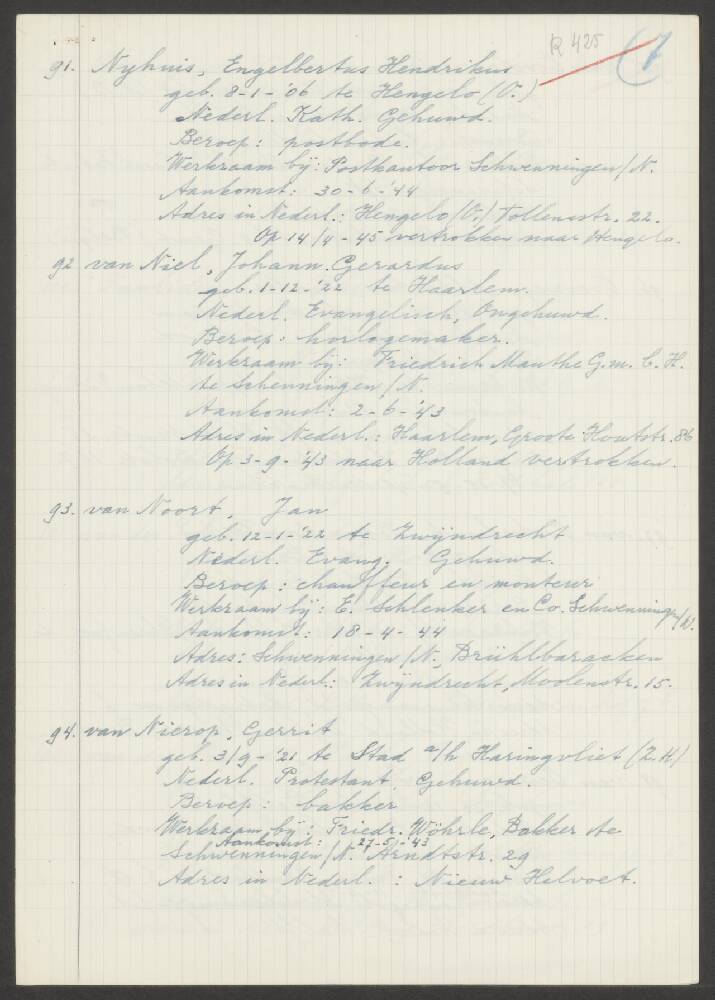 R 425 7
91. Nyhuis, Engelbertus Hendrikus
geb. 8-1-'06 te Hengelo (O.)
Nederl. Kath. Gehuwd.
Beroep: postbode.
Werkzaam bij: Postkantoor Schwenningen/N.
Aankomst: 30-6-'44
Adres in Nederl.: Hengelo (O.) Tollensstr. 22.
Op 14/4-45 vertrokken naar Hengelo.
92 van Niel, Johann. Gerardus
geb. 1-12-'22 te Haarlem.
Nederl. Evangelisch, Ongehuwd.
Beroep: horlogemaker.
Werkzaam bij: Friedrich Mauthe G.m.b.H.
te Schenningen/N.
Aankomst: 2-6-'43
Adres in Nederl.: Haarlem, Groote Houtstr. 86
Op 3-9-'43 naar Holland vertrokken.
93. van Noort, Jan
geb. 12-1-'22 te Zwijndrecht
Nederl. Evang. Gehuwd.
Beroep: chauffeur en monteur
Werkzaam bij: E. Schlenker en Co. Schwenningen/N.
Aankomst: 18-4-44
Adres: Schwenningen/N., Brühlbaracken
Adres in Nederl.: Zwijndrecht, Moolenstr. 15.
94. van Nierop, Gerrit
geb. 3/9-'21 te Stad a/h Haringvliet (Z.H.)
Nederl. Protestant, Gehuwd.
Beroep: bakker
Werkzaam bij: Friedr. Wöhrle, Bakker te
Aankomst: 27-5-'43
Schwenningen/N. Arndtstr. 29
Adres in Nederl.: Nieuw Helvoet.